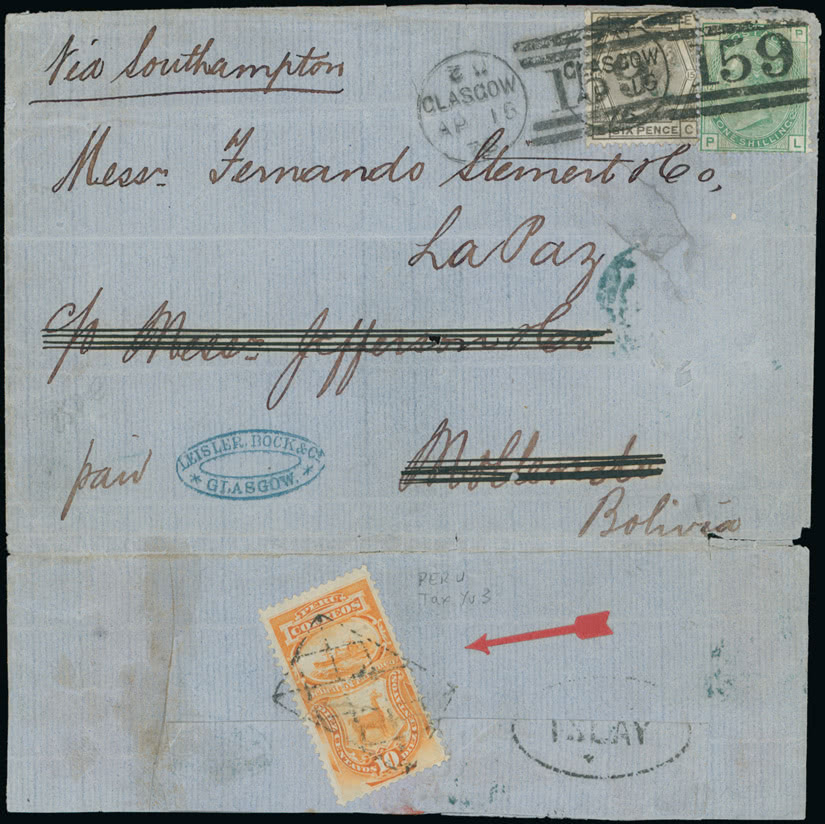 Via Southampton
2 U
GLASGOW
AP 16
GLASGOW
AP 16
159
SIX PENCE C
P
ONE SHILLING
P L
Messrs. Fernando Stemert & Co,
La Paz
c/o Messrs Jefferson & Co
paid
LEISLER, BOCK & Co
* GLASGOW. *
Mollendo
Bolivia
PERU
Tax Yv. 3
PERU
CORREOS
10
ISLAY